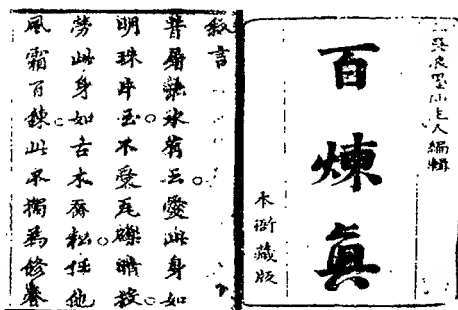 三吳浪墨仙主人編輯
百煉眞
本衙藏版
敍言
昔屠水有云愛此身如
明珠片玉不受瓦礫暗投
勞此身如古木喬松任他
風霜百鍊此不獨為修養